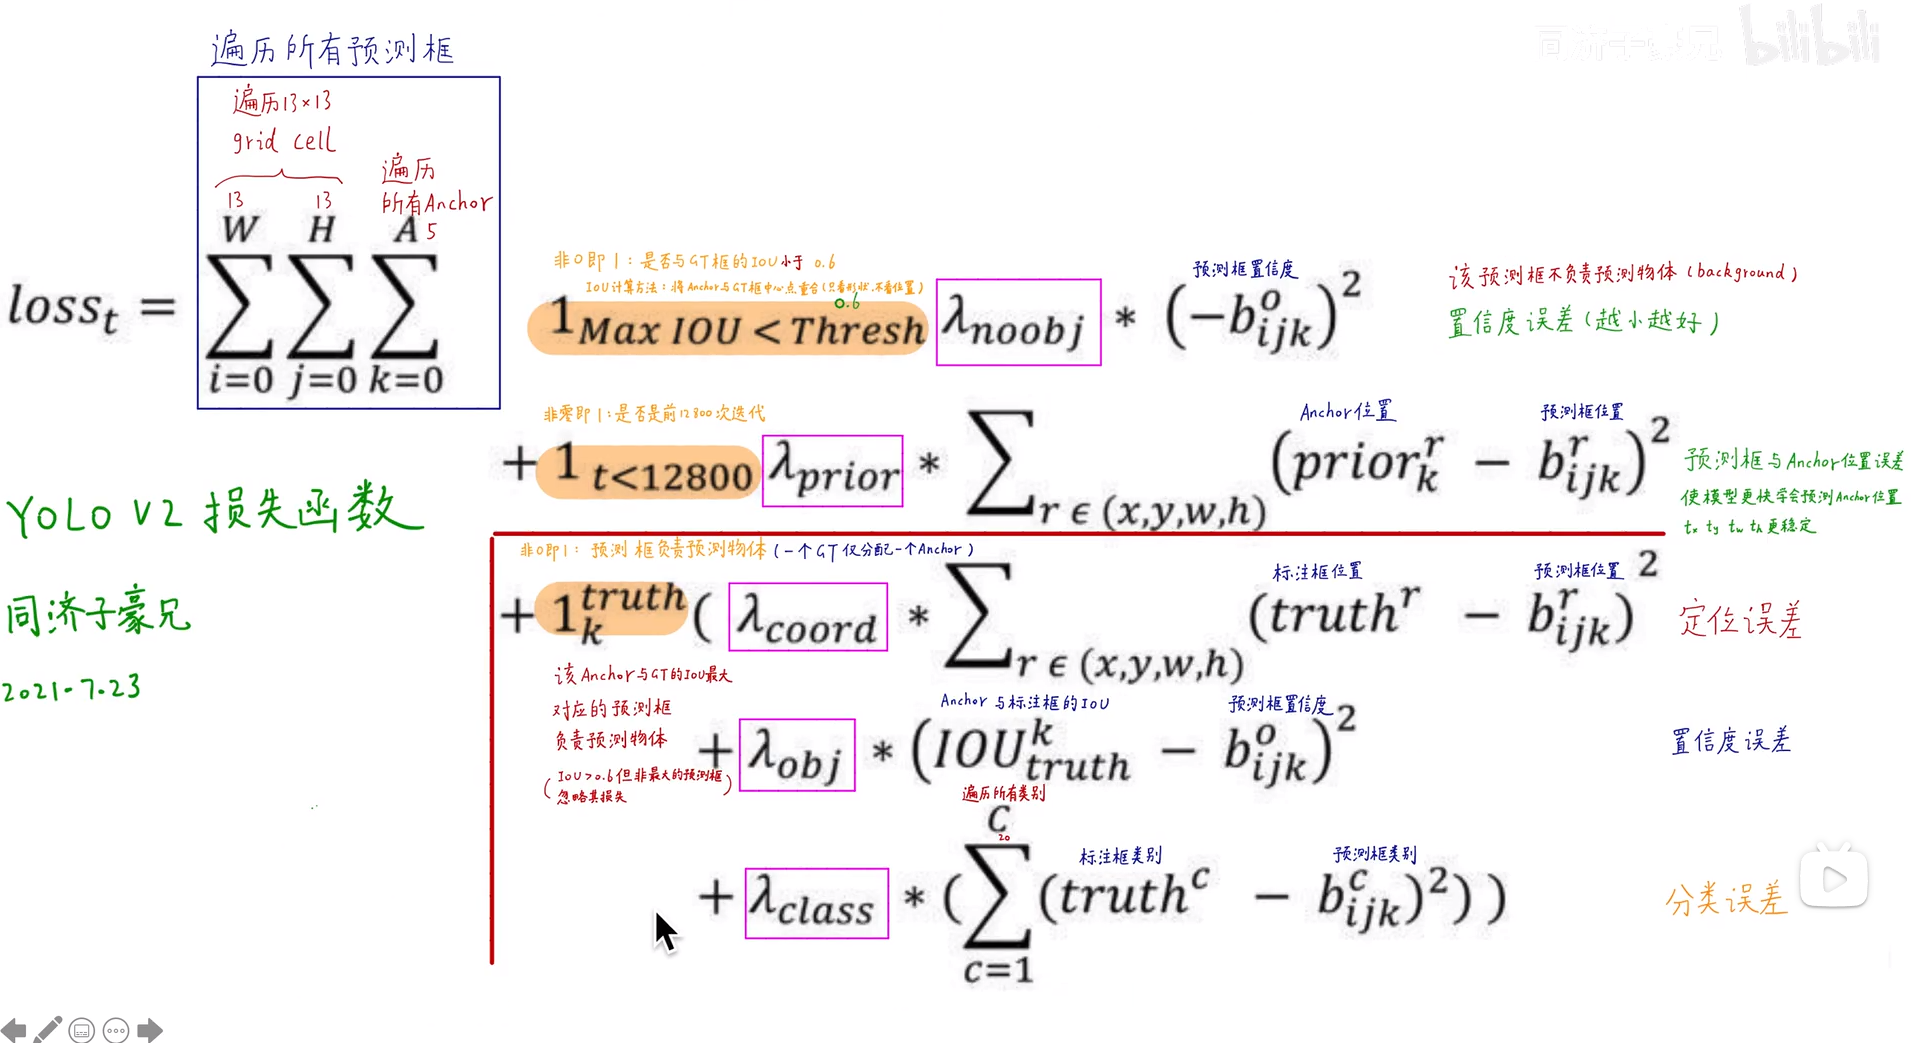 遍历所有预测框
遍历13×13
grid cell
遍历
所有Anchor
13 13 5
W H A
loss_t = ∑ ∑ ∑
i=0 j=0 k=0
非0即1：是否与GT框的IOU小于 0.6
IOU计算方法：将Anchor与GT框中心点重合(只看形状,不看位置)
0.6
预测框置信度
1_{Max IOU < Thresh} λ_{noobj} * (−b_{ijk}^{o})^2
该预测框不负责预测物体(background)
置信度误差(越小越好)
非零即1：是否是前12800次迭代
Anchor位置 预测框位置
+ 1_{t<12800} λ_{prior} * ∑_{r ϵ (x,y,w,h)} (prior_k^r − b_{ijk}^r)^2
预测框与Anchor位置误差
使模型更快学会预测Anchor位置
tx ty tw th更稳定
YOLO V2 损失函数
同济子豪兄
2021.7.23
非0即1：预测框负责预测物体(一个GT仅分配一个Anchor)
标注框位置 预测框位置
+ 1_k^{truth} ( λ_{coord} * ∑_{r ϵ (x,y,w,h)} (truth^r − b_{ijk}^r)^2
定位误差
该Anchor与GT的IOU最大
对应的预测框
负责预测物体
(IOU>0.6但非最大的预测框
忽略其损失)
Anchor与标注框的IOU 预测框置信度
+ λ_{obj} * (IOU_{truth}^k − b_{ijk}^o)^2
置信度误差
遍历所有类别
C
20
标注框类别 预测框类别
+ λ_{class} * (∑ (truth^c − b_{ijk}^c)^2))
c=1
分类误差
bilibili